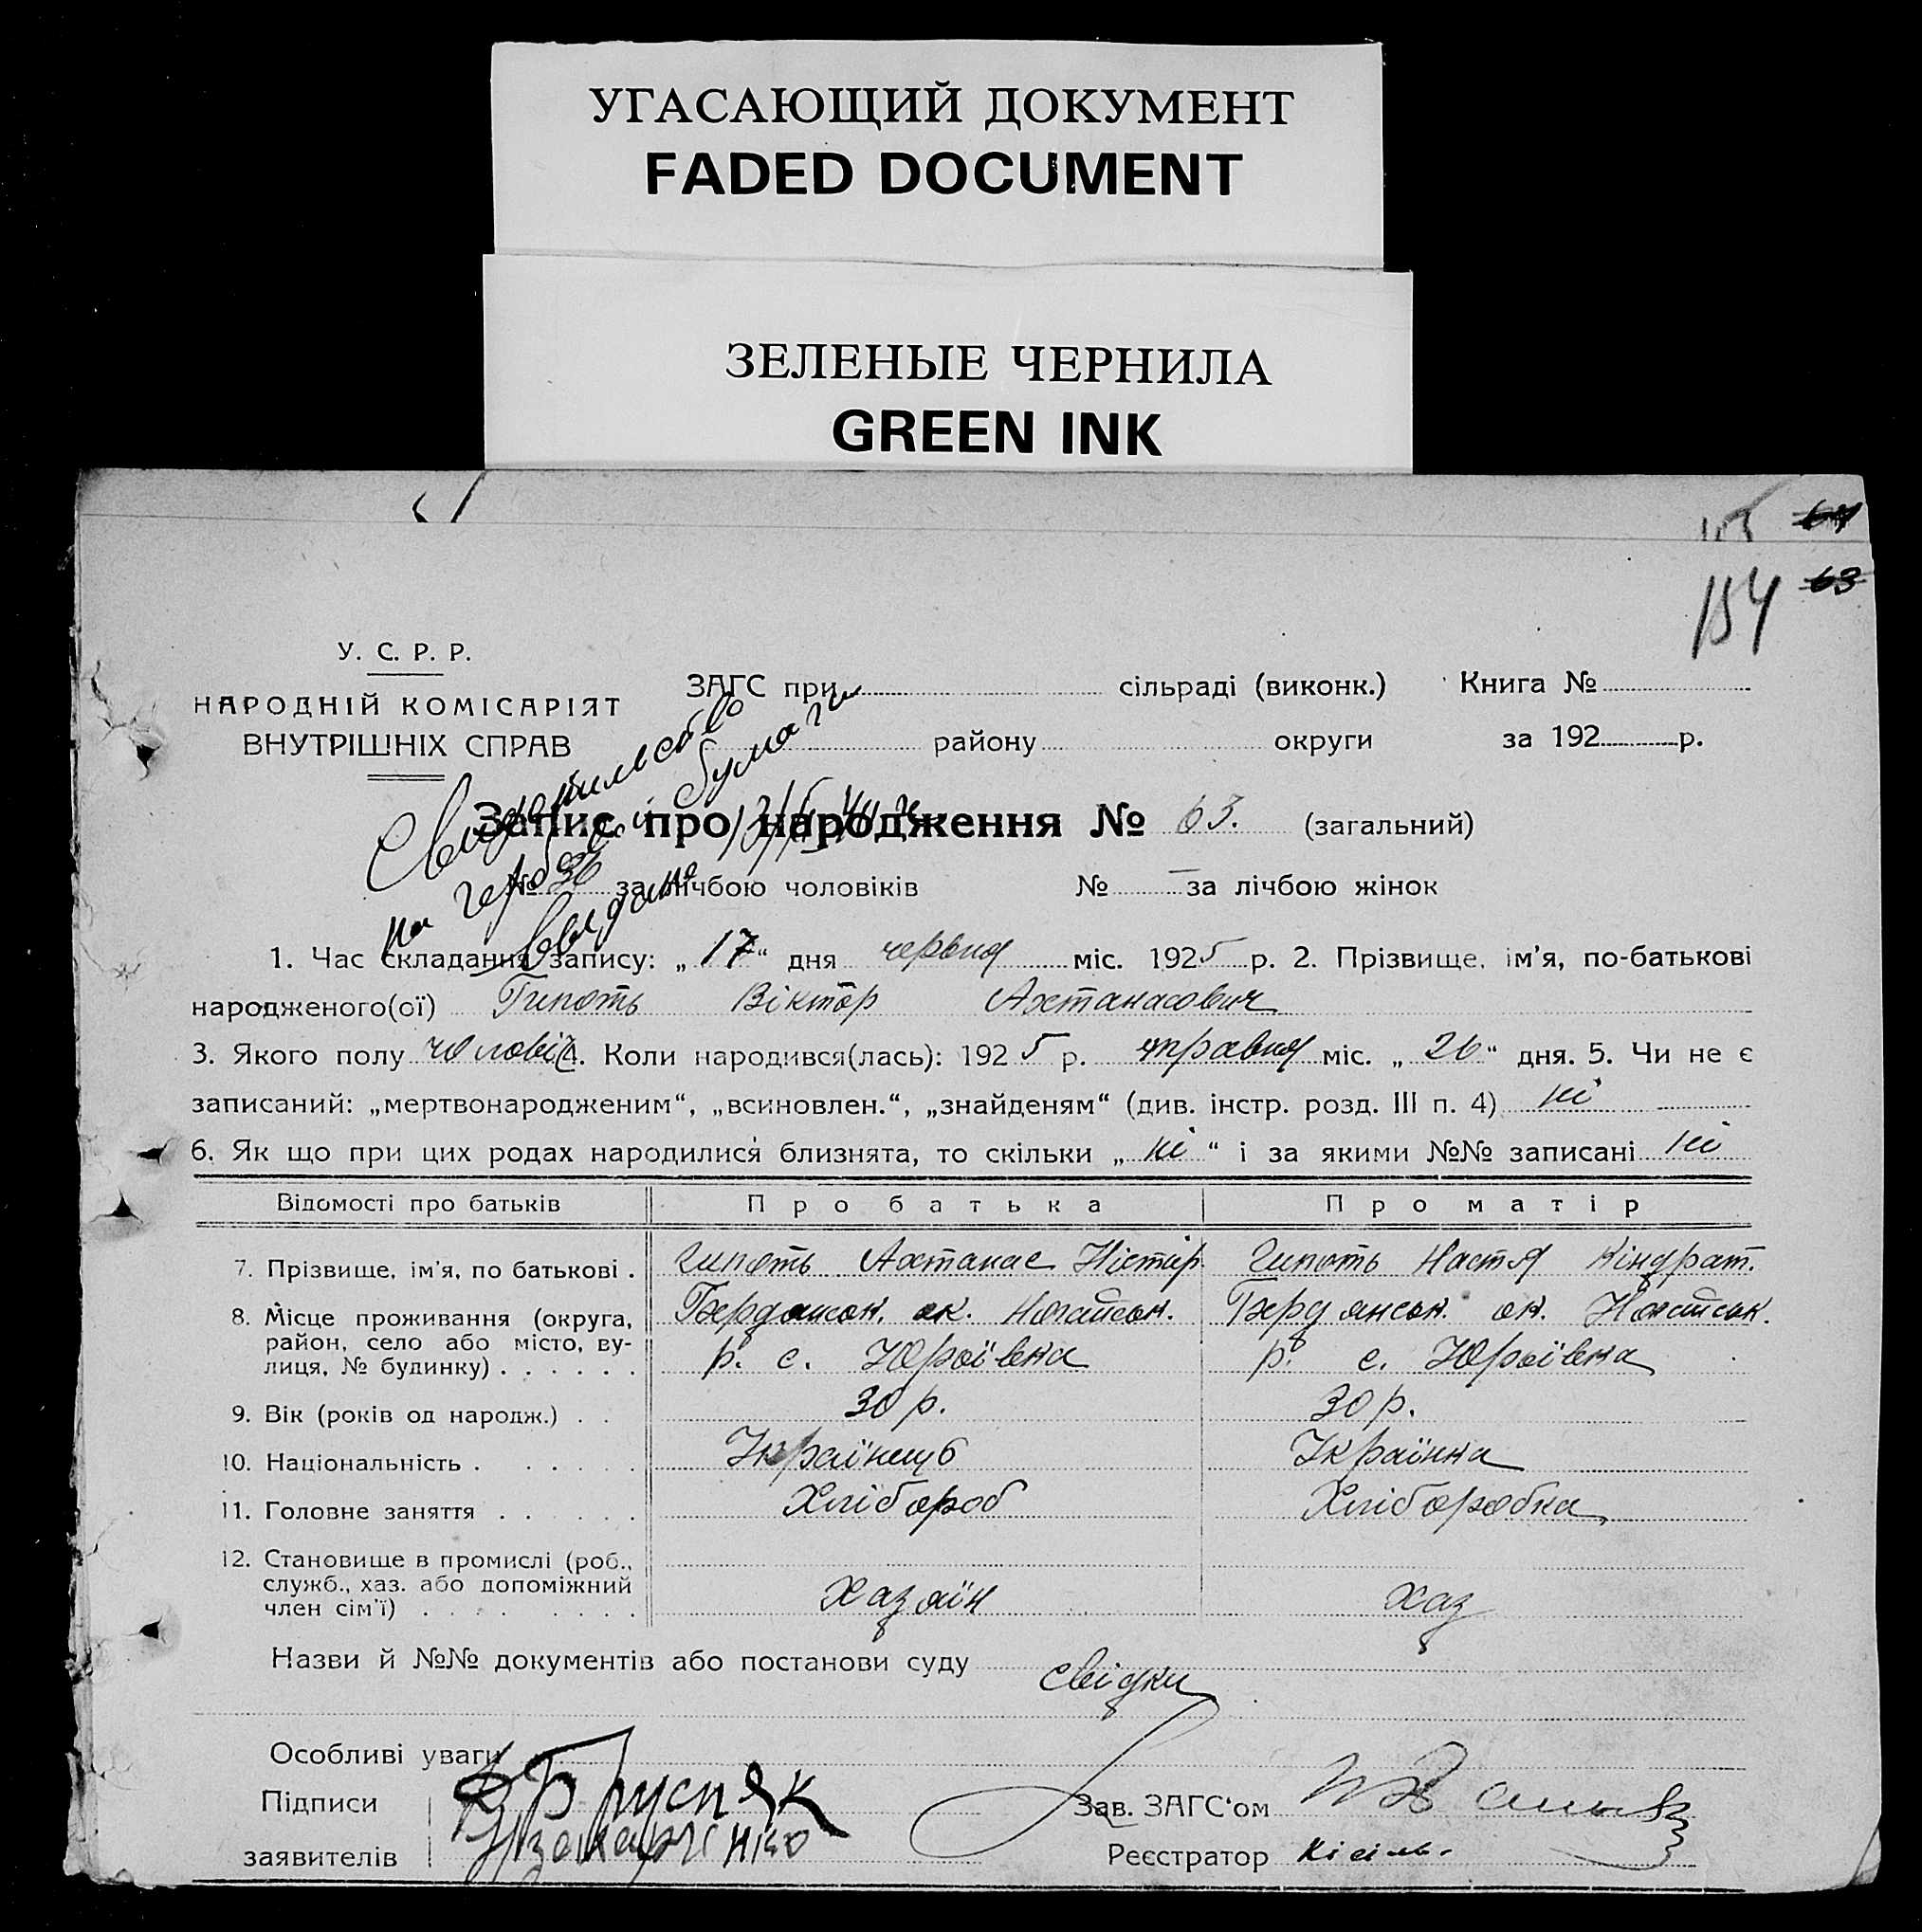 УГАСАЮЩИЙ ДОКУМЕНТ
FADED DOCUMENT
ЗЕЛЕНЫЕ ЧЕРНИЛА
GREEN INK
64
154 63
У. С. Р. Р.
НАРОДНІЙ КОМІСАРІЯТ
ВНУТРІШНІХ СПРАВ
ЗАГС при сільраді (виконк.) Книга №
району округи за 192 р.
Свидетильство
на гербовой бумаги
Выдано
Запис про народження № 63. (загальний)
№ 36 за лічбою чоловіків № — за лічбою жінок
1. Час складання запису: „17“ дня червня міс. 1925 р. 2. Прізвище, ім'я, по-батькові
народженого(ої) Гипоть Віктор Ахтанасович
3. Якого полу чоловіч 4. Коли народився(лась): 1925 р. травня міс. „26“ дня. 5. Чи не є
записаний: „мертвонародженим“, „всиновлен.“, „знайденям“ (див. інстр. розд. III п. 4) ні
6. Як що при цих родах народилися близнята, то скільки „ні“ і за якими №№ записані ні
Відомості про батьків Про батька Про матір
7. Прізвище, ім'я, по батькові . Гипоть Ахтанас Нестір. Гипоть Настя Кіндрат.
8. Місце проживання (округа, район, село або місто, вулиця, № будинку) . . . . . . Бердянськ. ок. Ногайськ. р. с. Юрївка Бердянськ. ок. Ногайськ. р. с. Юрївка
9. Вік (років од народж.) . . 30 р. 30 р.
10. Національність . . . . . . Українець Українка
11. Головне заняття . . . . . . Хлібороб Хліборобка
12. Становище в промислі (роб., служб., хаз. або допоміжний член сім'ї) . . . . . . . . Хазаїн хаз
Назви й №№ документів або постанови суду свідки
Особливі уваги
Підписи
заявителів
Зав. ЗАГС'ом
Реєстратор Кісіль.